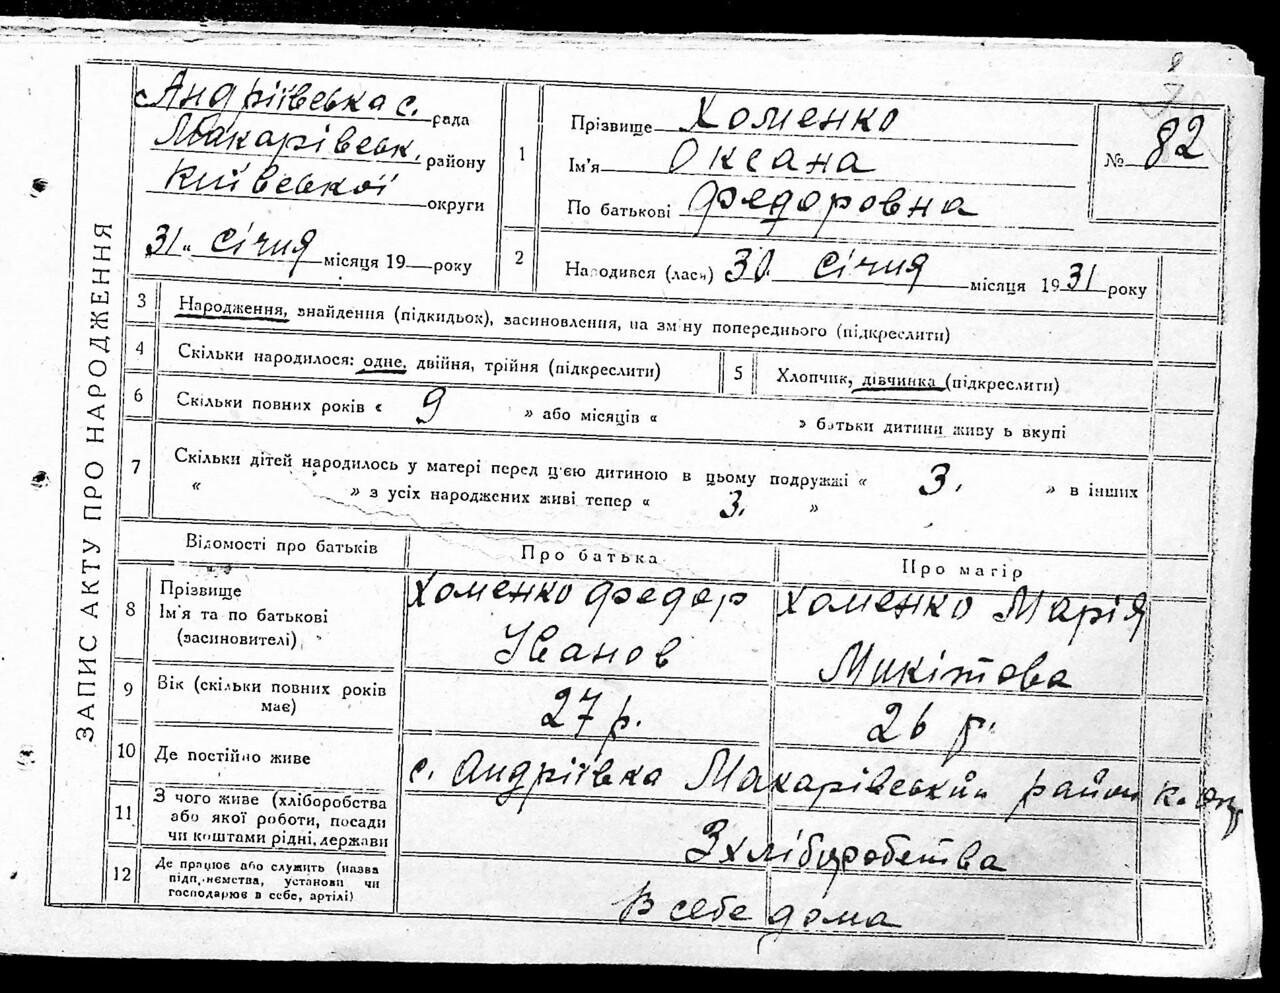 ЗАПИС АКТУ ПРО НАРОДЖЕННЯ
Андріївська с. рада
Макарівськ. району
Київської округи
31" січня місяця 19 року
1
Прізвище Хоменко
Ім'я Оксана
По батькові Федоровна
№ 82
2
Народився (лася) 30 січня місяця 1931 року
3 Народження, знайдення (підкидьок), засиновлення, на зміну попереднього (підкреслити)
4 Скільки народилося: одне, двійня, трійня (підкреслити)
5 Хлопчик, дівчинка (підкреслити)
6 Скільки повних років « 9 » або місяців « » батьки дитини живуть вкупі
7 Скільки дітей народилось у матері перед цією дитиною в цьому подружжі « 3. » в інших
« » з усіх народжених живі тепер « 3. »
Відомості про батьків Про батька Про матір
8 Прізвище
Ім'я та по батькові
(засиновителі)
Хоменко Федор
Іванов
Хоменко Марія
Микітова
9 Вік (скільки повних років
має)
27 р. 26 р.
10 Де постійно живе
с. Андріївка Макарівський район к.
11 З чого живе (хліборобства
або якої роботи, посади
чи коштами рідні, держави
З хліборобства
12 Де працює або служить (назва
підприємства, установи чи
господарює в себе, артілі)
В себе дома